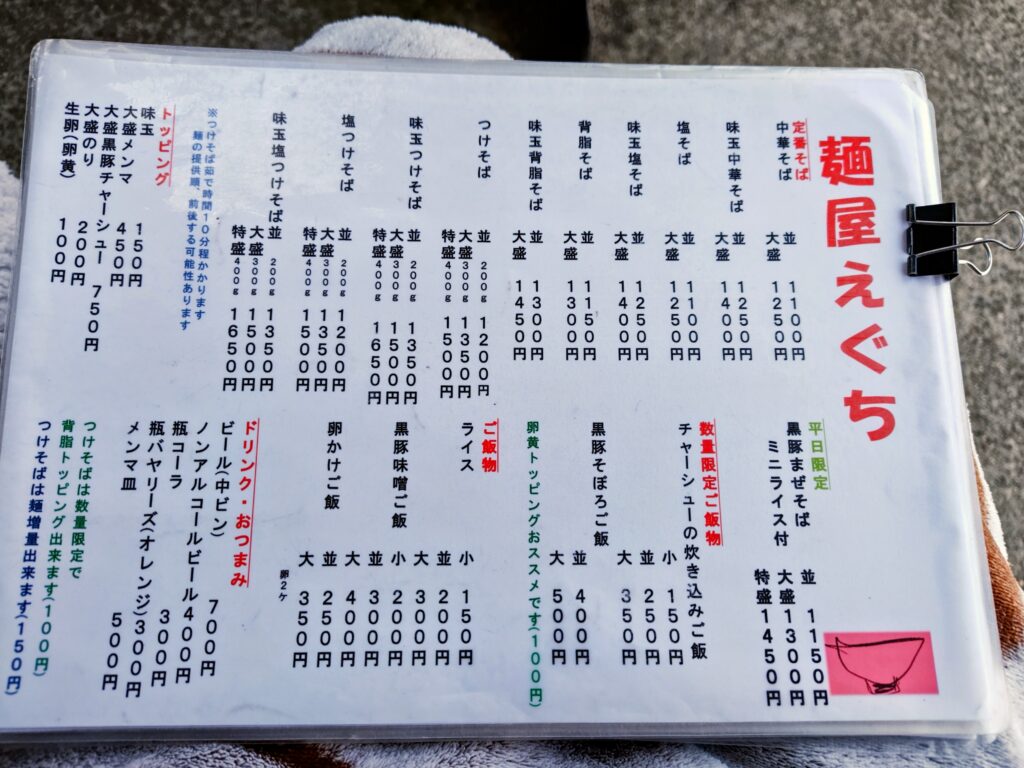 麺屋えぐち
定番そば
中華そば 並 1100円
大盛 1250円
味玉中華そば 並 1250円
大盛 1400円
塩そば 並 1100円
大盛 1250円
味玉塩そば 並 1250円
大盛 1400円
背脂そば 並 1150円
大盛 1300円
味玉背脂そば 並 1300円
大盛 1450円
つけそば 並 200g 1200円
大盛 300g 1350円
特盛 400g 1500円
味玉つけそば 並 200g 1350円
大盛 300g 1500円
特盛 400g 1650円
塩つけそば 並 200g 1200円
大盛 300g 1350円
特盛 400g 1500円
味玉塩つけそば 並 200g 1350円
大盛 300g 1500円
特盛 400g 1650円
※つけそば茹で時間10分程かかります
麺の提供順、前後する可能性あります
トッピング
味玉 150円
大盛メンマ 450円
大盛黒豚チャーシュー 750円
大盛のり 200円
生卵(卵黄) 100円
平日限定
黒豚まぜそば 並 1150円
ミニライス付 大盛 1300円
特盛 1450円
数量限定ご飯物
チャーシューの炊き込みご飯
小 150円
並 250円
大 350円
黒豚そぼろご飯 並 400円
大 500円
卵黄トッピングおススメです(100円)
ご飯物
ライス 小 150円
並 200円
大 300円
黒豚味噌ご飯 小 200円
並 300円
大 400円
卵かけご飯 並 250円
大 350円
卵2ケ
ドリンク・おつまみ
ビール(中ビン) 700円
ノンアルコールビール 400円
瓶コーラ 300円
瓶バヤリーズ(オレンジ) 300円
メンマ皿 500円
つけそばは数量限定で
背脂トッピング出来ます(100円)
つけそばは麺増量出来ます(150円)